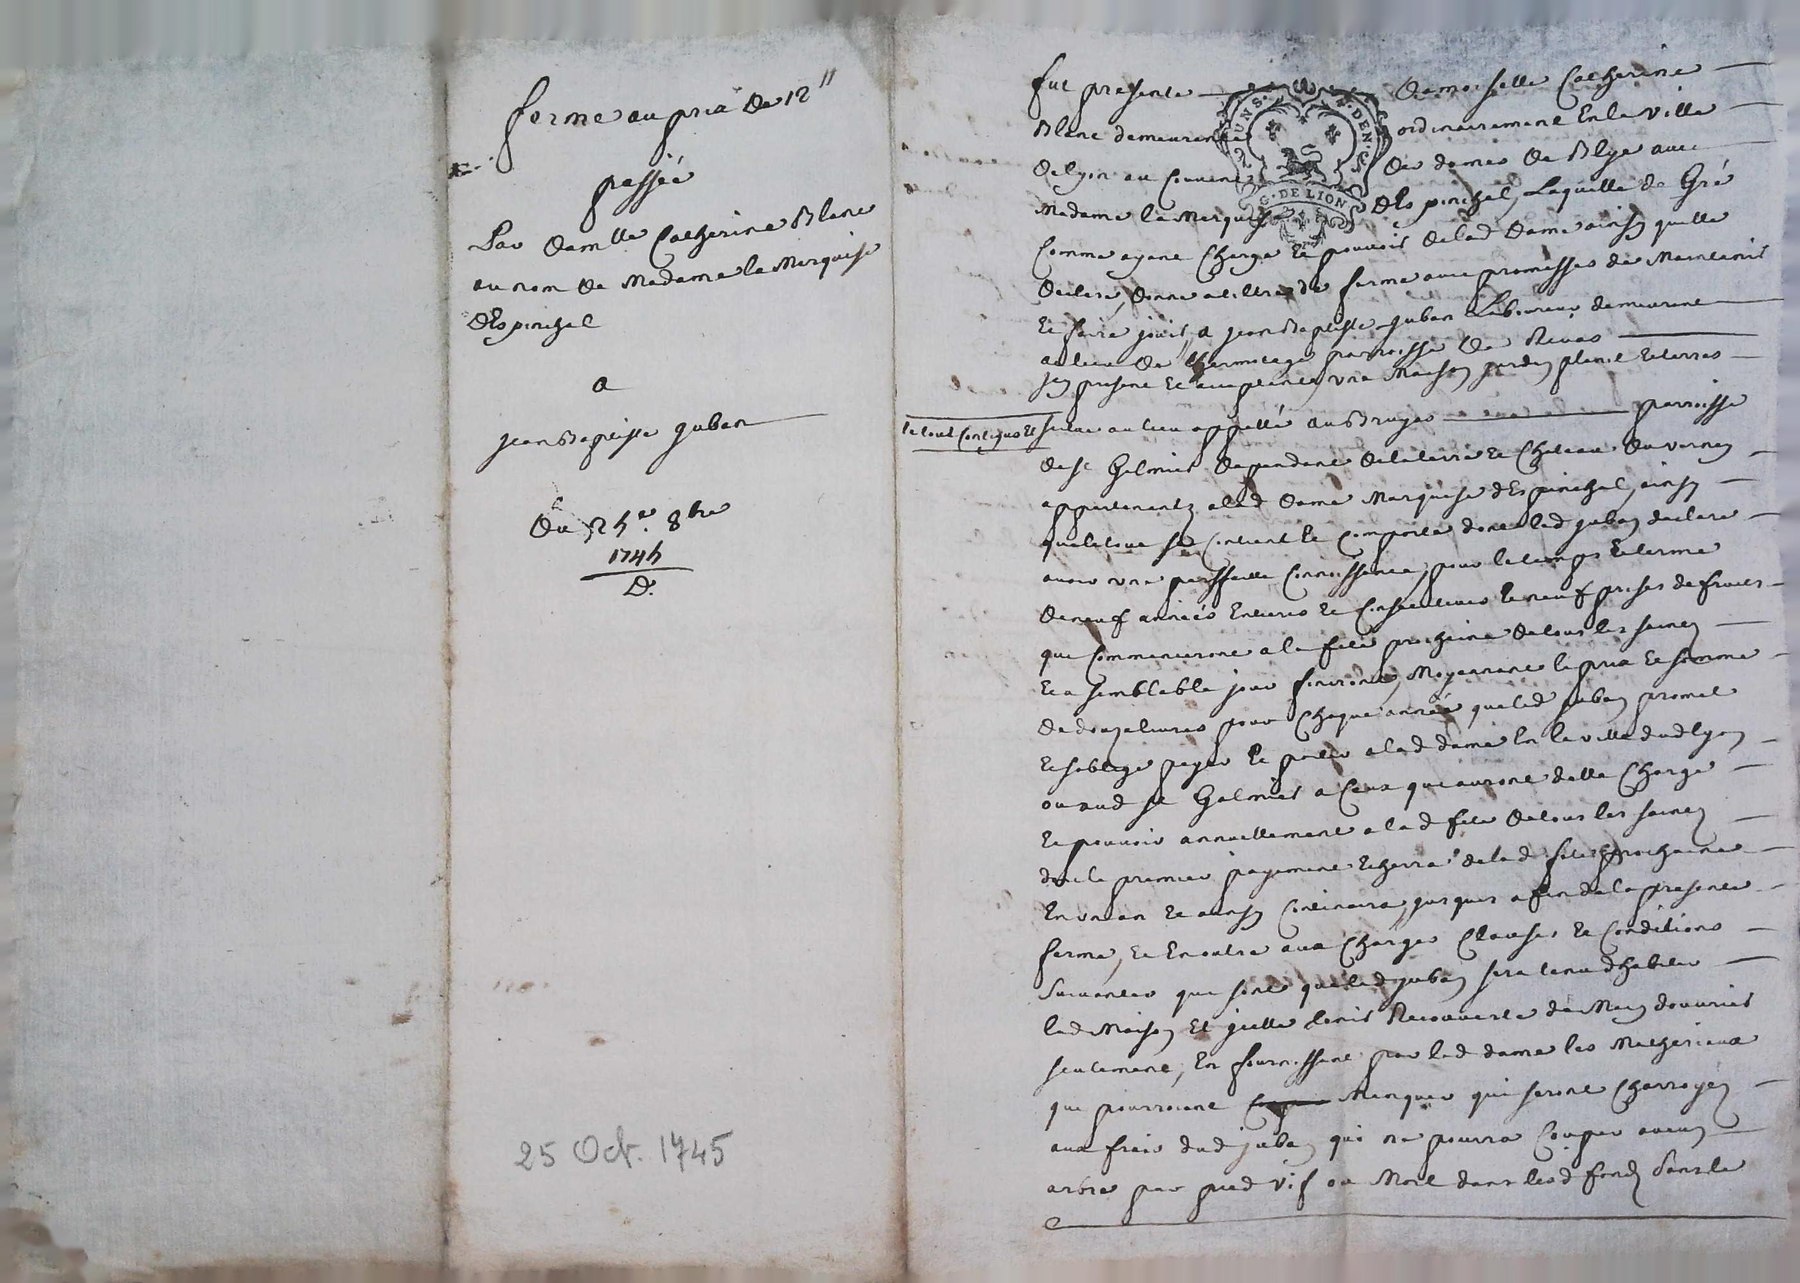 ferme au prix de 12"
passée
Par damlle Catherine Blanc
au nom de Madame la Marquise
dEspinchal
a
jean Baptiste juban
du 25e. 8bre
1745
D.
25 Oct. 1745
fut presente Damoiselle Catherine
Blanc demeurante ordinairement En la ville
de lyon au Couvent des dames de Blye avec
Madame la Marquise dEspinchal, Laquelle de Gré
Comme ayant Charge et pouvoir de lad Dame ainsy quelle
declare, donne a tiltre de ferme avec promesses de Maintenir
Et faire jouir, a jean Baptiste juban Laboureur demeurant
au lieu de Lhermitage parroisse de Rivas
icy present et acceptant, une Maison jardin plant et terres
le tout Contigus et
scitue au lieu appellé au Bruyer parroisse
de st Galmier dependant de la terre et Chateau du vernay
appartenants a lad Dame Marquise dEspinchal, ainsy
que le tout se Contient et Comporte dont led juban declare
avoir une parffaitte Connoissance, pour le temps et terme
de neuf années Entieres et Consecutives et neuf prises de fruits
que Commenceront a la fete prochaine de tous les saints
Et a semblable jour finiront, Moyennant le prix et somme
de douze livres pour Chaque année que led juban promet
Et soblige payer et porter a lad dame En la ville dud lyon
ou aud st Galmier a Ceux qui auront delle Charge
Et pouvoir annuellement a lad fete de tous les saints
dont le premier payement Echerra de lad fete prochaine
En un an et ainsy Continuera, jusques a fin de la presente
ferme, et En outre aux Charges Clauses et Conditions
suivantes qui sont que led juban sera tenu dhabiter
lad Maison Et jcelle tenir Recouverte de Main douvrier
seulement, En fournissant par lad dame les Matheriaux
qui pourroient Manquer qui seront Charroyés
aux frais dud juban qui ne pourra Couper aucun
arbre par pied vif ou Mort dans lesd fonds sans le